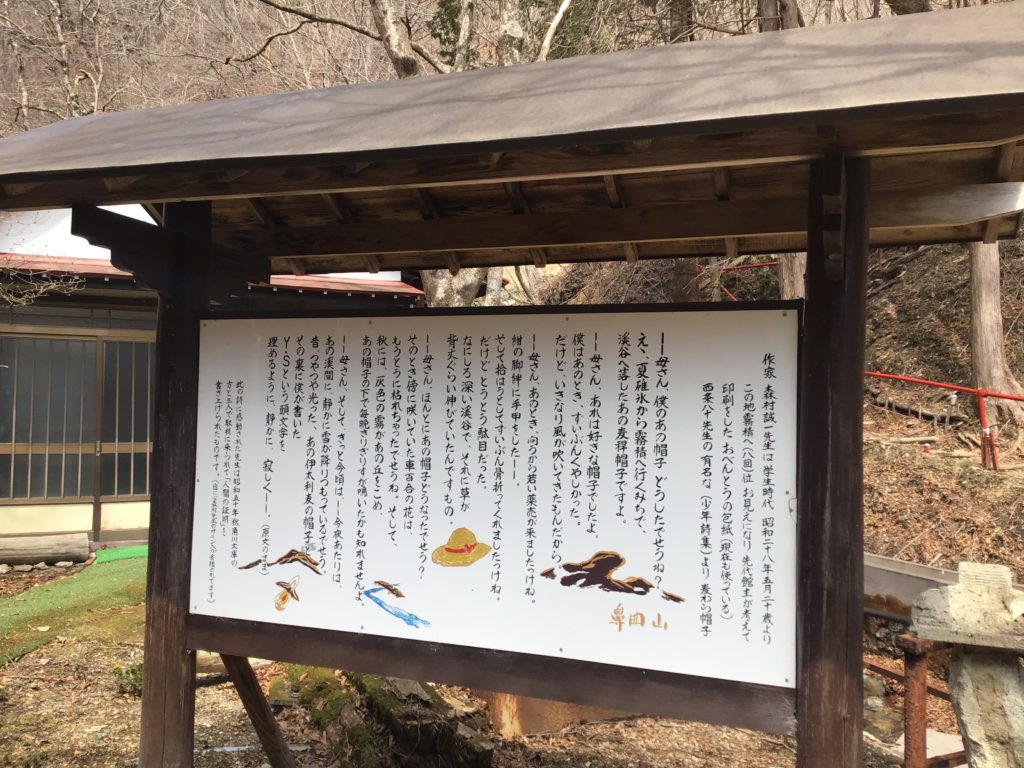 作家 森村誠一先生は 学生時代 昭和二十八年五月二十歳より
この地霧積へ(八回)位お見えになり 先代館主が考えて
印刷をした おべんとうの包紙(現在も使っている)
西条八十先生の 有名な(少年詩集)より 麦わら帽子
――母さん、僕のあの帽子 どうしたでせうね?
ええ、夏碓氷から霧積へ行くみちで、
渓谷へ落したあの麦稈帽子ですよ。
――母さん、あれは好きな帽子でしたよ。
僕はあのとき、ずいぶんくやしかった。
だけど、いきなり風が吹いてきたもんだから
――母さん、あのとき、向うから若い薬売が来ましたっけね。
紺の脚絆に手甲をした――
そして拾はうとしてずいぶん骨折ってくれましたっけね。
だけど とうとう駄目だった。
なにしろ深い渓谷で、それに草が
背丈ぐらい伸びていたんですもの
――母さん、ほんとにあの帽子どうなったでせう?
そのとき傍に咲いていた車百合の花は、
もうとうに枯れちゃったでせうね、そして、
秋には、灰色の霧があの丘をこめ、
あの帽子の下で毎晩きりぎりすが鳴いたかも知れませんよ。
――母さん、そして、きっと今頃は――今夜あたりは、
あの渓間に、静かに雪が降りつもっているでせう、
昔、つやつや光った、あの伊太利麦の帽子と
その裏に僕が書いた
Y―Sという頭文字を
埋めるように、静かに、寂しく――。
(原文のまま)
此の詩に感動された先生は昭和五十年秋角川文庫の
方と三人で取材に来られて「人間の証明」を
書き上げられたものです。
鼻曲山